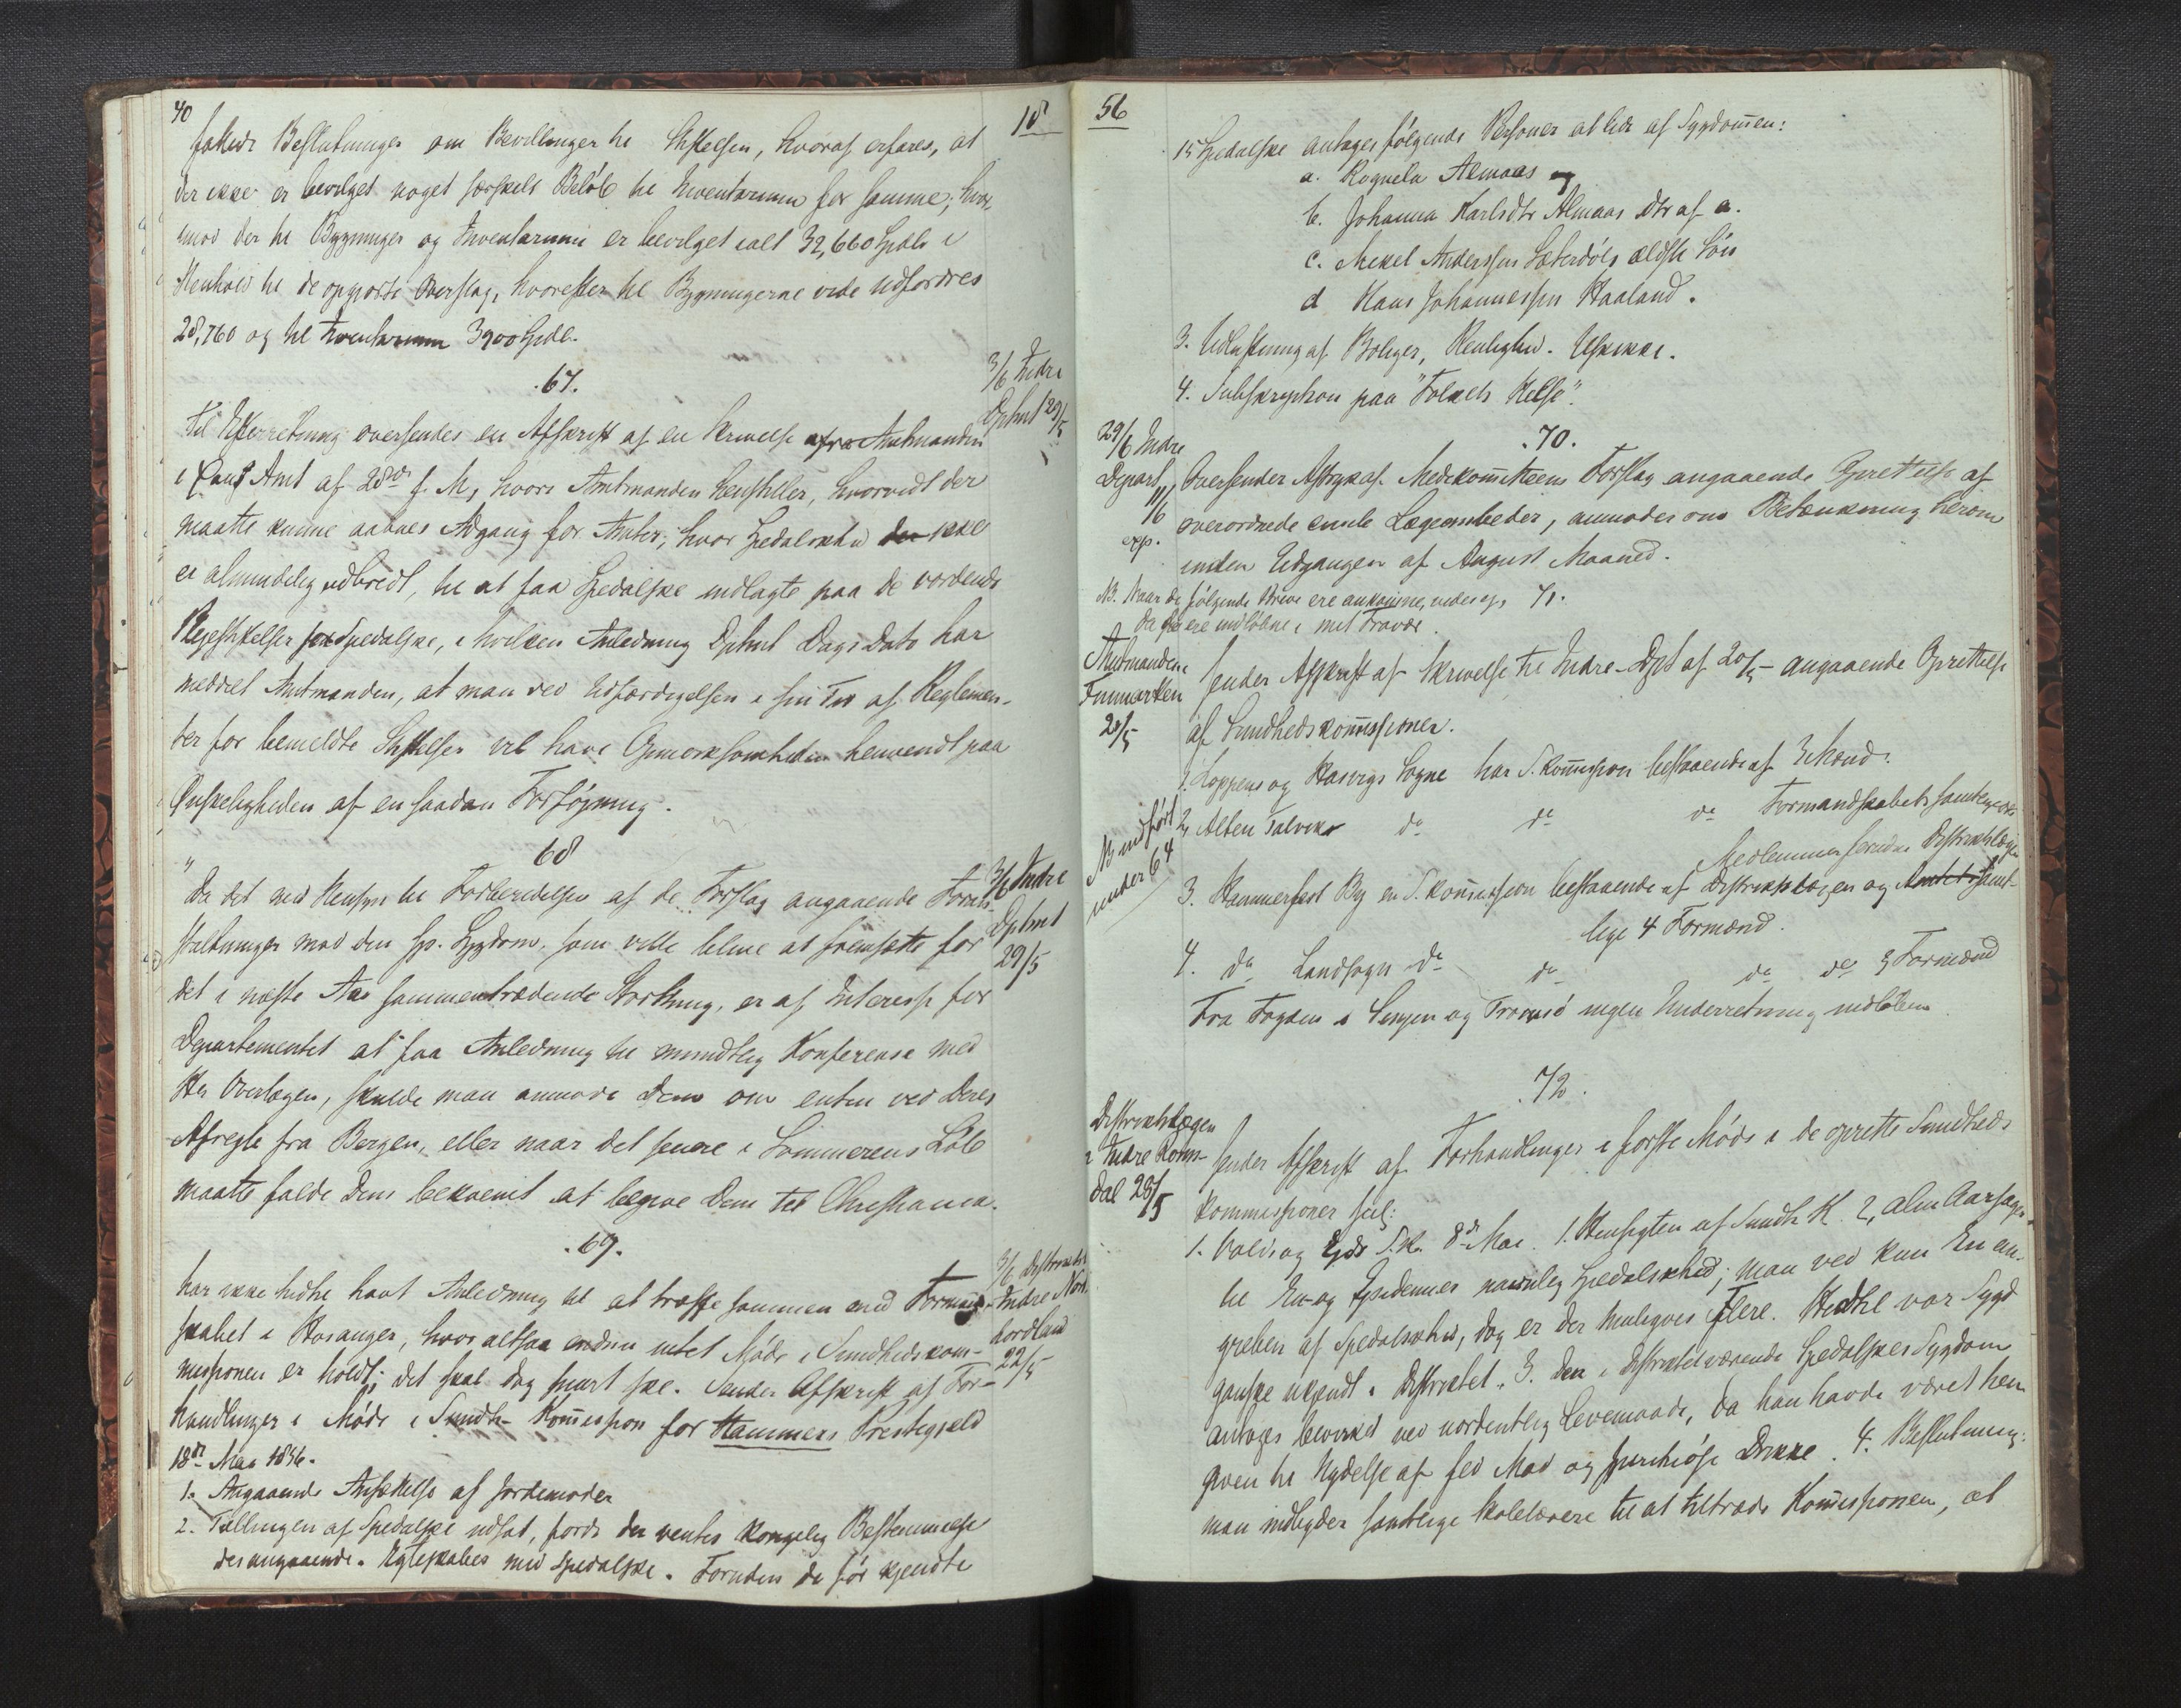 40
18
fattede Beslutninger om Bevillinger til Stiftelsen, hvoraf erfares, at
der ikke er bevilget noget særskilt Beløb til Inventarium for samme; hvor-
imod der til Bygninger og Inventarium er bevilget ialt 32,660 Spdlr i
Henhold til de opgjorte Overslag, hvorefter til Bygningerne vilde udfordres
28,760 og til Inventarium 3900 Spdlr.
.67.
3/6 Indre
Dptmt 29/5
Til Efterretning oversendes en Afskrift af en Skrivelse fra Amtmanden
i Amt af 28de f. M., hvori Amtmanden henstiller, hvorvidt der
maatte kunne aabnes Adgang for Amter, hvor Spedalskhed ikke
er almindelig udbredt, til at faa Spedalske indlagte paa de vordende
Plejestiftelser for Spedalske, i hvilken Anledning Dptmt Dags Dato har
meddelt Amtmanden, at man ved Udfærdigelsen i sin Tid af Reglemen-
ter for bemeldte Stiftelser vil have Opmærksomheden henvendt paa
Ønskeligheden af en saadan Forføjning.
68
3/6 Indre
Dptmt
29/5
"Da det med Hensyn til Forberedelsen af de Forslag angaaende Foran-
staltninger mod den sp. Sygdom, som ville blive at fremsætte for
det i næste Aar sammentrædende Storthing, er af Interesse for
Departementet at faa Anledning til mundtlig Konferense med
Hr Overlægen, skulde man anmode Dem om enten ved Deres
Afrejse fra Bergen, eller naar det senere i Sommerens Løb
maatte falde Dem bekvemt at begive Dem til Christiania.
.69.
3/6 Distriktsl
Indre Nord-
hordland
22/5
har ikke hidtil havt Anledning til at træffe sammen med Formand-
skabet i Hosanger, hvor altsaa endnu intet Møde i Sundhedskom-
missionen er holdt; det skal dog snart ske. Sender Afskrift af For-
handlinger i Møde i Sundh- Kommission for Hammers Prestegjeld
18de Mai 1856.
1. Angaaende Ansættelse af Jordemoder
2. Tællingen af Spedalske udsat, fordi der ventes kongelig Bestemmelse
desangaaende. Ægteskaber med Spedalske. Foruden de før kjendte
56
15 Spedalske antages følgende Personer at lide af Sygdommen:
a. Rognela Almaas og
b. Johanna Karlsdtr Almaas Dtr af a.
c. Mikel Anderssen Sæterdøls ældste Søn
d Hans Johannessen Haaland.
3. Udluftning af Boliger, Renlighed. Uskikke.
4. Subskription paa "Folkets Helse".
.70.
29/6 Indre
Depart.
11/6
exp.
Oversender Aftryk af Medikomitteens Forslag angaaende Oprettelse af
overordnede civile Lægeembeder, anmoder om Betænkning herom
inden Udgangen af August Maaned.
NB. Naar de følgende Breve ere ankomne, vides ej,
da de ere indløbne i mit Fravær.
71.
Amtmanden i
Finmarken
20/5
Sender Afskrift af Skrivelse til Indre-Dpt af 20/5 - angaaende Oprettelse
af Sundhedskommissioner.
NB indført
under 64
1. Loppens og Hasvigs Sogne har S. kommission bestaaende af 3 Mænd.
2, Alten Talviks do do do Formandskabets samtlige
Medlemmer foruden Distriktslægen
3. Hammerfest By en S. kommission bestaaende af Distriktslægen og Samt-
lige 4 Formænd.
4. do Landsogn do do do de 3 Formænd
Fra Fogden i Senjen og Tromsø ingen Underretning indløben
.72.
Distriktslægen
i Indre Roms-
dal 28/5
Sender Afskrift af Forhandlinger i første Møde i de oprettede Sundheds
kommissioner
1. Vold og Eids S.K. 8de Mai. 1. Hensigten af Sundh K. 2, alm Aarsager
til En- og Epidemier navnlig Spedalskhed; man ved kun En an-
greben af Spedalskhed, dog er der muligvis flere. Hidtil var Sygd
ganske ukjendt i Distriktet. 3. Den i Distriktet værende Spedalskes Sygdom
antages bevirket ved uordentlig Levemaade, da han havde været hen
given til Nydelse af fed Mad og spirituøse Drikke. 4. Beslutning:
man indbyder samtlige Skolelærere til at tiltræde Kommissionen, at